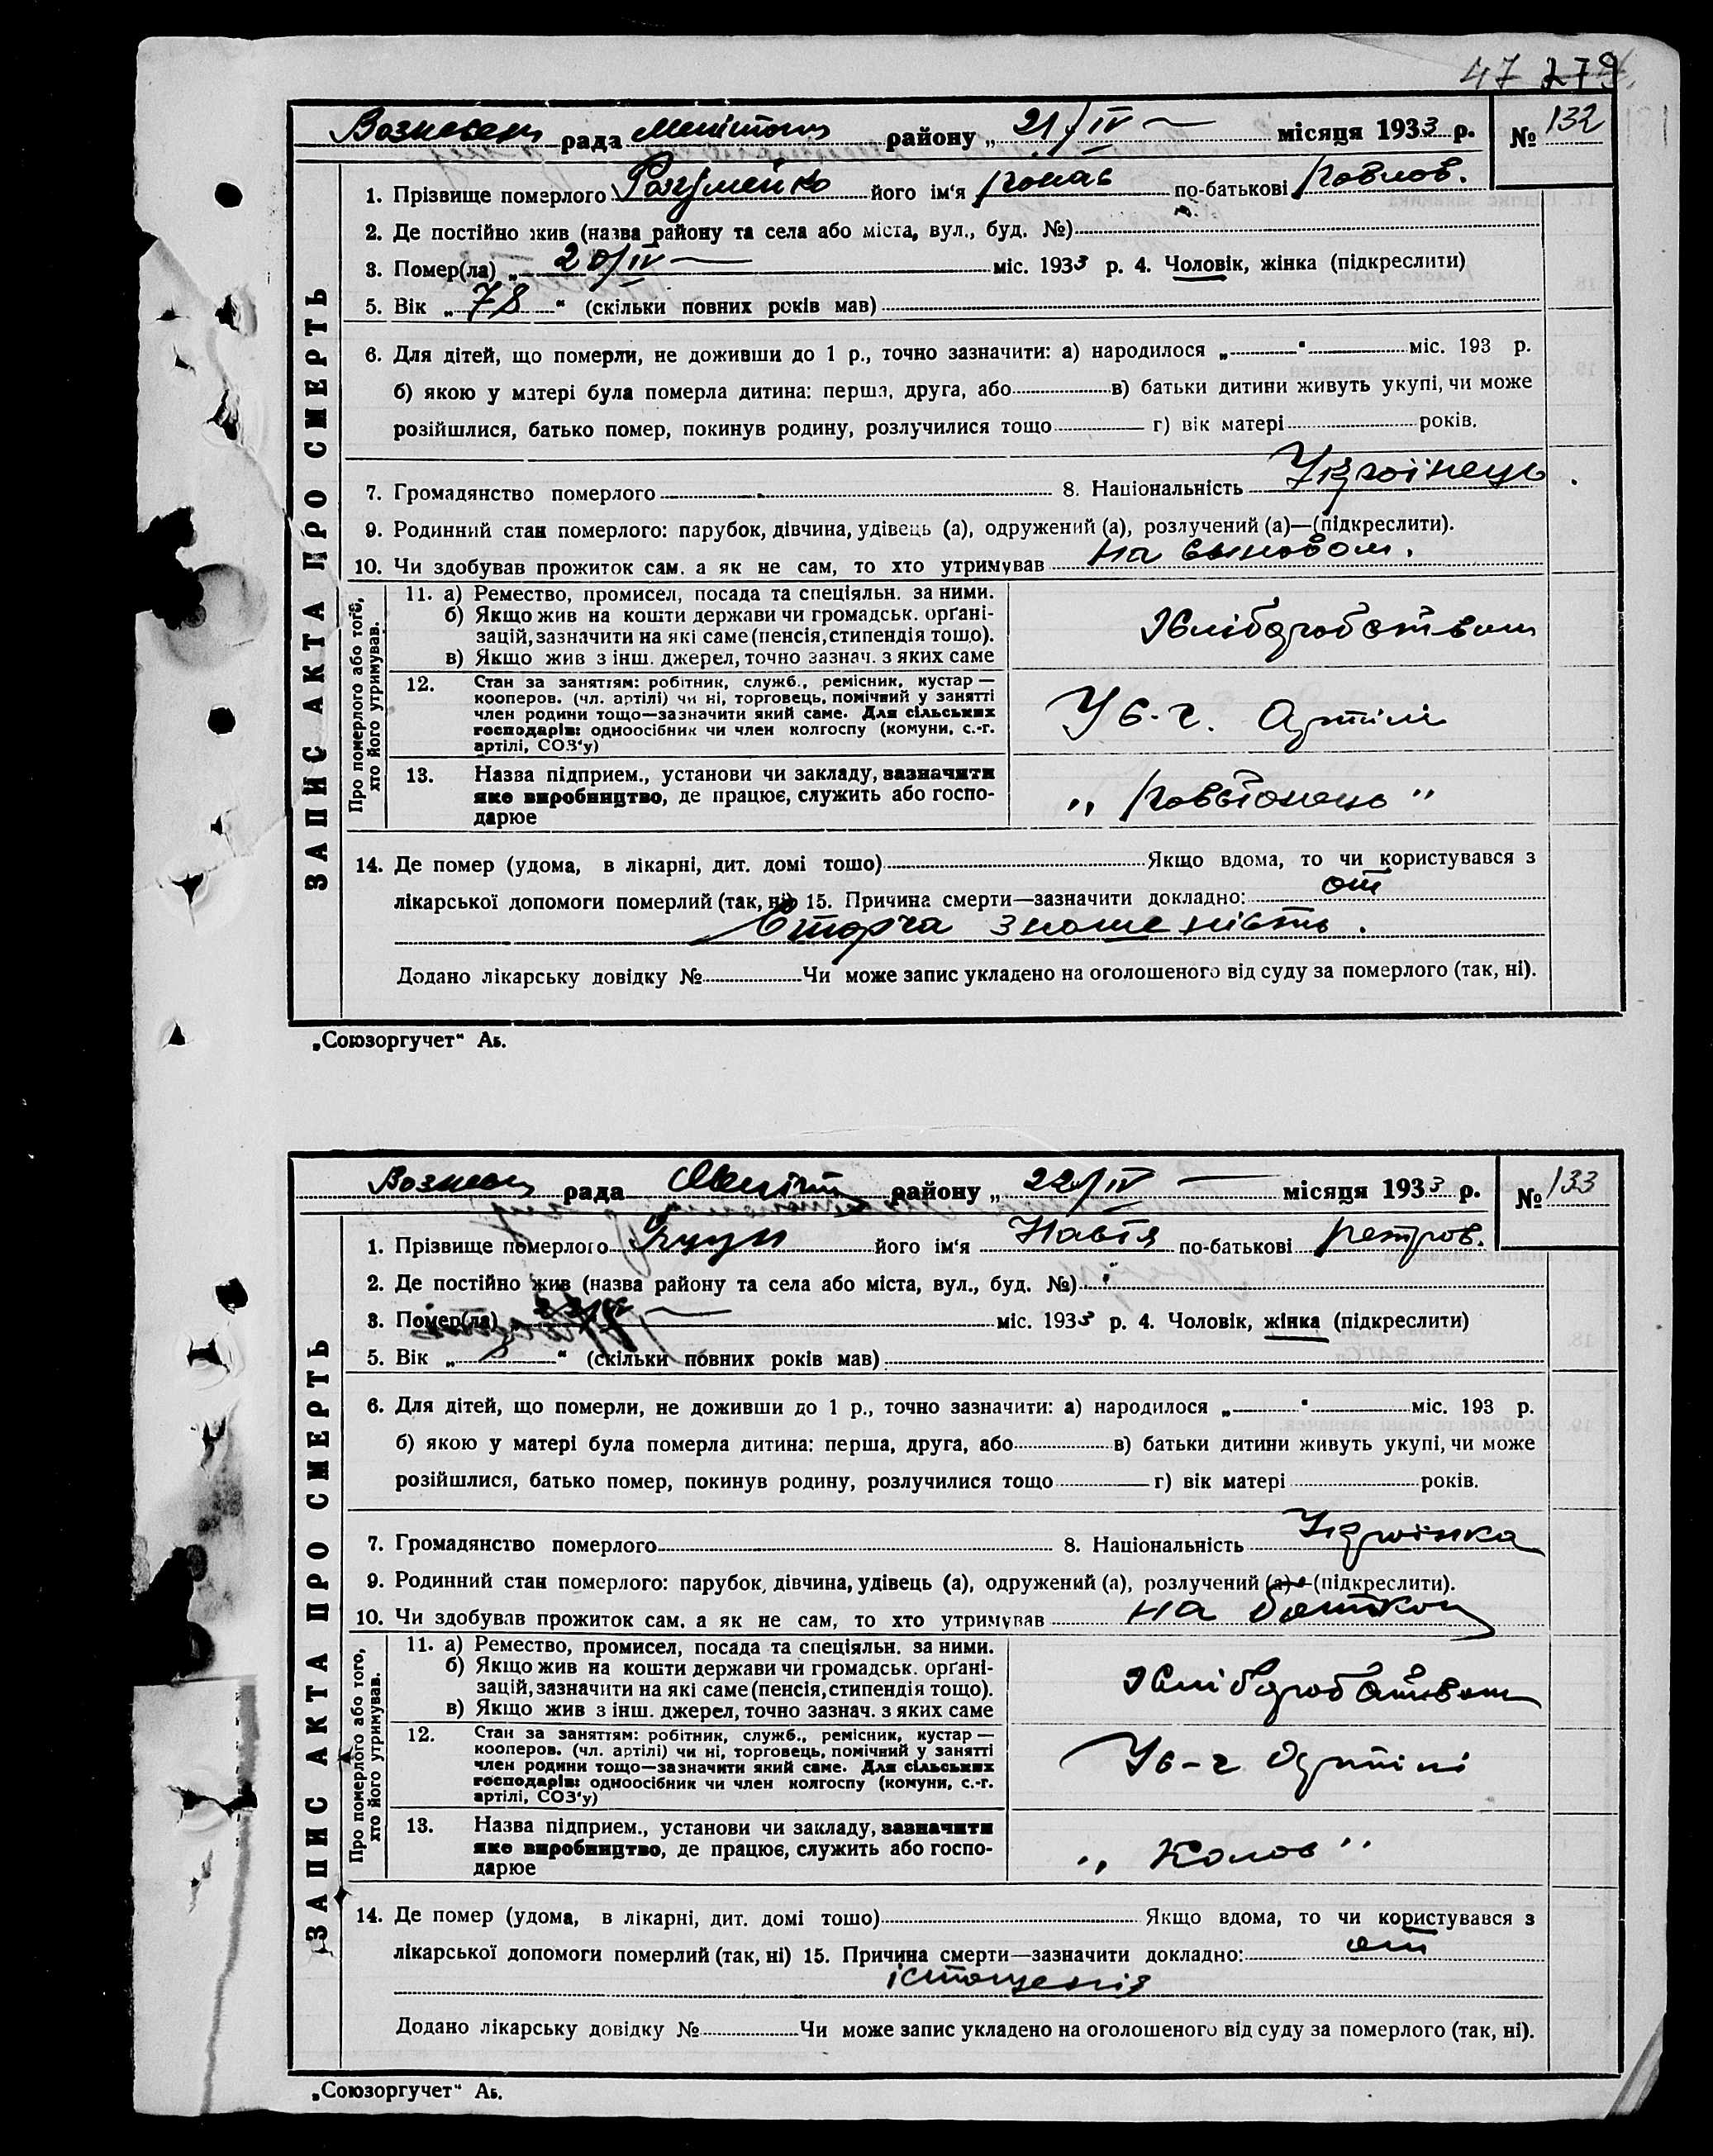 47 279
Вознесен рада Меліт району „ 21/IV місяця 1933 р. № 132
1. Прізвище померлого його ім‘я по-батькові Павлов.
2. Де постійно жив (назва району та села або міста, вул., буд. №)
3. Помер(ла) „ 20/IV міс. 1933 р. 4. Чоловік, жінка (підкреслити)
5. Вік „ 78 “ (скільки повних років мав)
6. Для дітей, що померли, не доживши до 1 р., точно зазначити: а) народилося „ “ міс. 193 р.
б) якою у матері була померла дитина: перша, друга, або в) батьки дитини живуть укупі, чи може
розійшлися, батько помер, покинув родину, розлучилися тощо г) вік матері років.
7. Громадянство померлого 8. Національність Українець
9. Родинний стан померлого: парубок, дівчина, удівець (а), одружений (а), розлучений (а)—(підкреслити).
10. Чи здобував прожиток сам, а як не сам, то хто утримував на
ЗАПИС АКТА ПРО СМЕРТЬ
Про померлого або того, хто його утримував.
11. а) Ремество, промисел, посада та спеціяльн. за ними.
б) Якщо жив на кошти держави чи громадськ. орґані-
зацій, зазначити на які саме (пенсія, стипендія тощо).
в) Якщо жив з інш. джерел, точно зазнач. з яких саме
Хліборобством
12. Стан за заняттям: робітник, служб., ремісник, кустар —
кооперов. (чл. артілі) чи ні, торговець, помічний у занятті
член родини тощо—зазначити який саме. Для сільських
господарів: одноосібник чи член колгоспу (комуни, с.-г.
артілі, СОЗ‘у)
У с-г. Артілі
13. Назва підприєм., установи чи закладу, зазначити
яке виробництво, де працює, служить або госпо-
дарює
14. Де помер (удома, в лікарні, дит. домі тошо) Якщо вдома, то чи користувався з
лікарської допомоги померлий (так, ні) 15. Причина смерти—зазначити докладно: от
зношеність.
Додано лікарську довідку № Чи може запис укладено на оголошеного від суду за померлого (так, ні).
„Союзоргучет“ Аь.
Вознесен рада Меліт району „ 22/IV місяця 1933 р. № 133
1. Прізвище померлого Яцун його ім‘я Надія по-батькові Петров.
2. Де постійно жив (назва району та села або міста, вул., буд. №)
3. Помер(ла) „ міс. 1933 р. 4. Чоловік, жінка (підкреслити)
5. Вік „ “ (скільки повних років мав)
6. Для дітей, що померли, не доживши до 1 р., точно зазначити: а) народилося „ “ міс. 193 р.
б) якою у матері була померла дитина: перша, друга, або в) батьки дитини живуть укупі, чи може
розійшлися, батько помер, покинув родину, розлучилися тощо г) вік матері років.
7. Громадянство померлого 8. Національність Українка
9. Родинний стан померлого: парубок, дівчина, удівець (а), одружений (а), розлучений (а)—(підкреслити).
10. Чи здобував прожиток сам, а як не сам, то хто утримував на батьком
ЗАПИС АКТА ПРО СМЕРТЬ
Про померлого або того, хто його утримував.
11. а) Ремество, промисел, посада та спеціяльн. за ними.
б) Якщо жив на кошти держави чи громадськ. орґані-
зацій, зазначити на які саме (пенсія, стипендія тощо).
в) Якщо жив з інш. джерел, точно зазнач. з яких саме
Хліборобством
12. Стан за заняттям: робітник, служб., ремісник, кустар —
кооперов. (чл. артілі) чи ні, торговець, помічний у занятті
член родини тощо—зазначити який саме. Для сільських
господарів: одноосібник чи член колгоспу (комуни, с.-г.
артілі, СОЗ‘у)
У с-г Артілі
13. Назва підприєм., установи чи закладу, зазначити
яке виробництво, де працює, служить або госпо-
дарює
„ Колос “
14. Де помер (удома, в лікарні, дит. домі тошо) Якщо вдома, то чи користувався з
лікарської допомоги померлий (так, ні) 15. Причина смерти—зазначити докладно: от
істощенія
Додано лікарську довідку № Чи може запис укладено на оголошеного від суду за померлого (так, ні).
„Союзоргучет“ Аь.